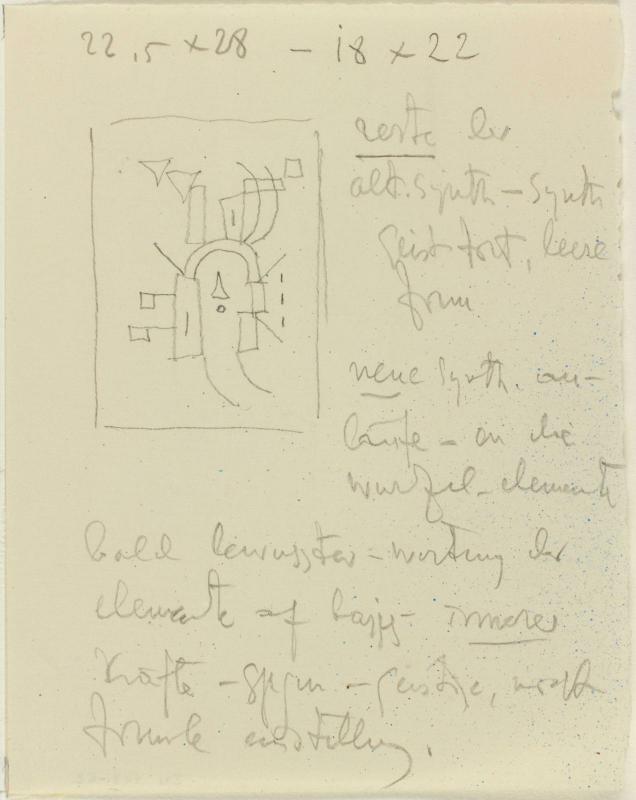 22,5 x 28 – 18 x 22
reste der
alt. Synth – Synth
Geist fort, leere
form
neue Synth. an-
läufe – an die
wurzel-elemente
bald bewusster – wertung der
elemente auf
innerer
Kräfte – – geistige, nicht
formale einstellung.